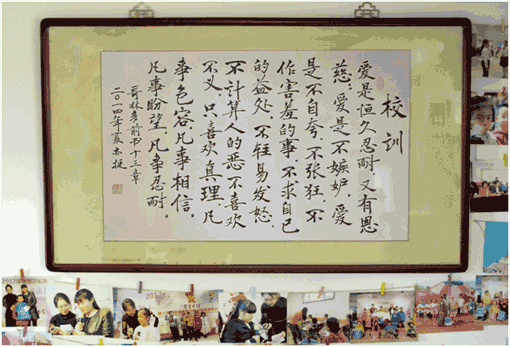 校训
爱是恒久忍耐,又有恩
慈,爱是不嫉妒,爱
是不自夸,不张狂,不
作害羞的事,不求自己
的益处,不轻易发怒,
不计算人的恶,不喜欢
不义,只喜欢真理,凡
事包容,凡事相信,
凡事盼望,凡事忍耐。
哥林多前书十三章
二〇一四年夏